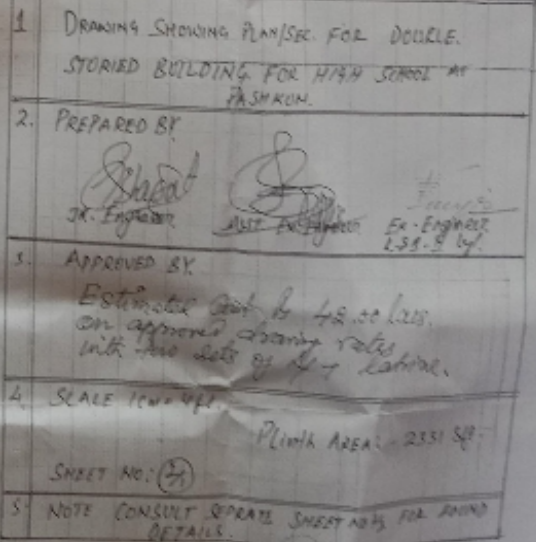 1 DRAWING SHOWING PLAN/SEC. FOR DOUBLE.
STORIED BUILDING FOR HIGH SCHOOL AT
PASHKUM.
2. PREPARED BY
Jr. Engineer Asstt Ex Engineer Ex-Engineer
3. APPROVED BY.
Estimated Cost Rs 42.00 lacs.
on approved drawing rates
with two sets of latrine.
4. SCALE 1cm = 4ft.
PLinth AREA:- 2331 Sft.
SHEET NO:
5 NOTE CONSULT SEPRATE SHEET FOR FOUND
DETAILS.